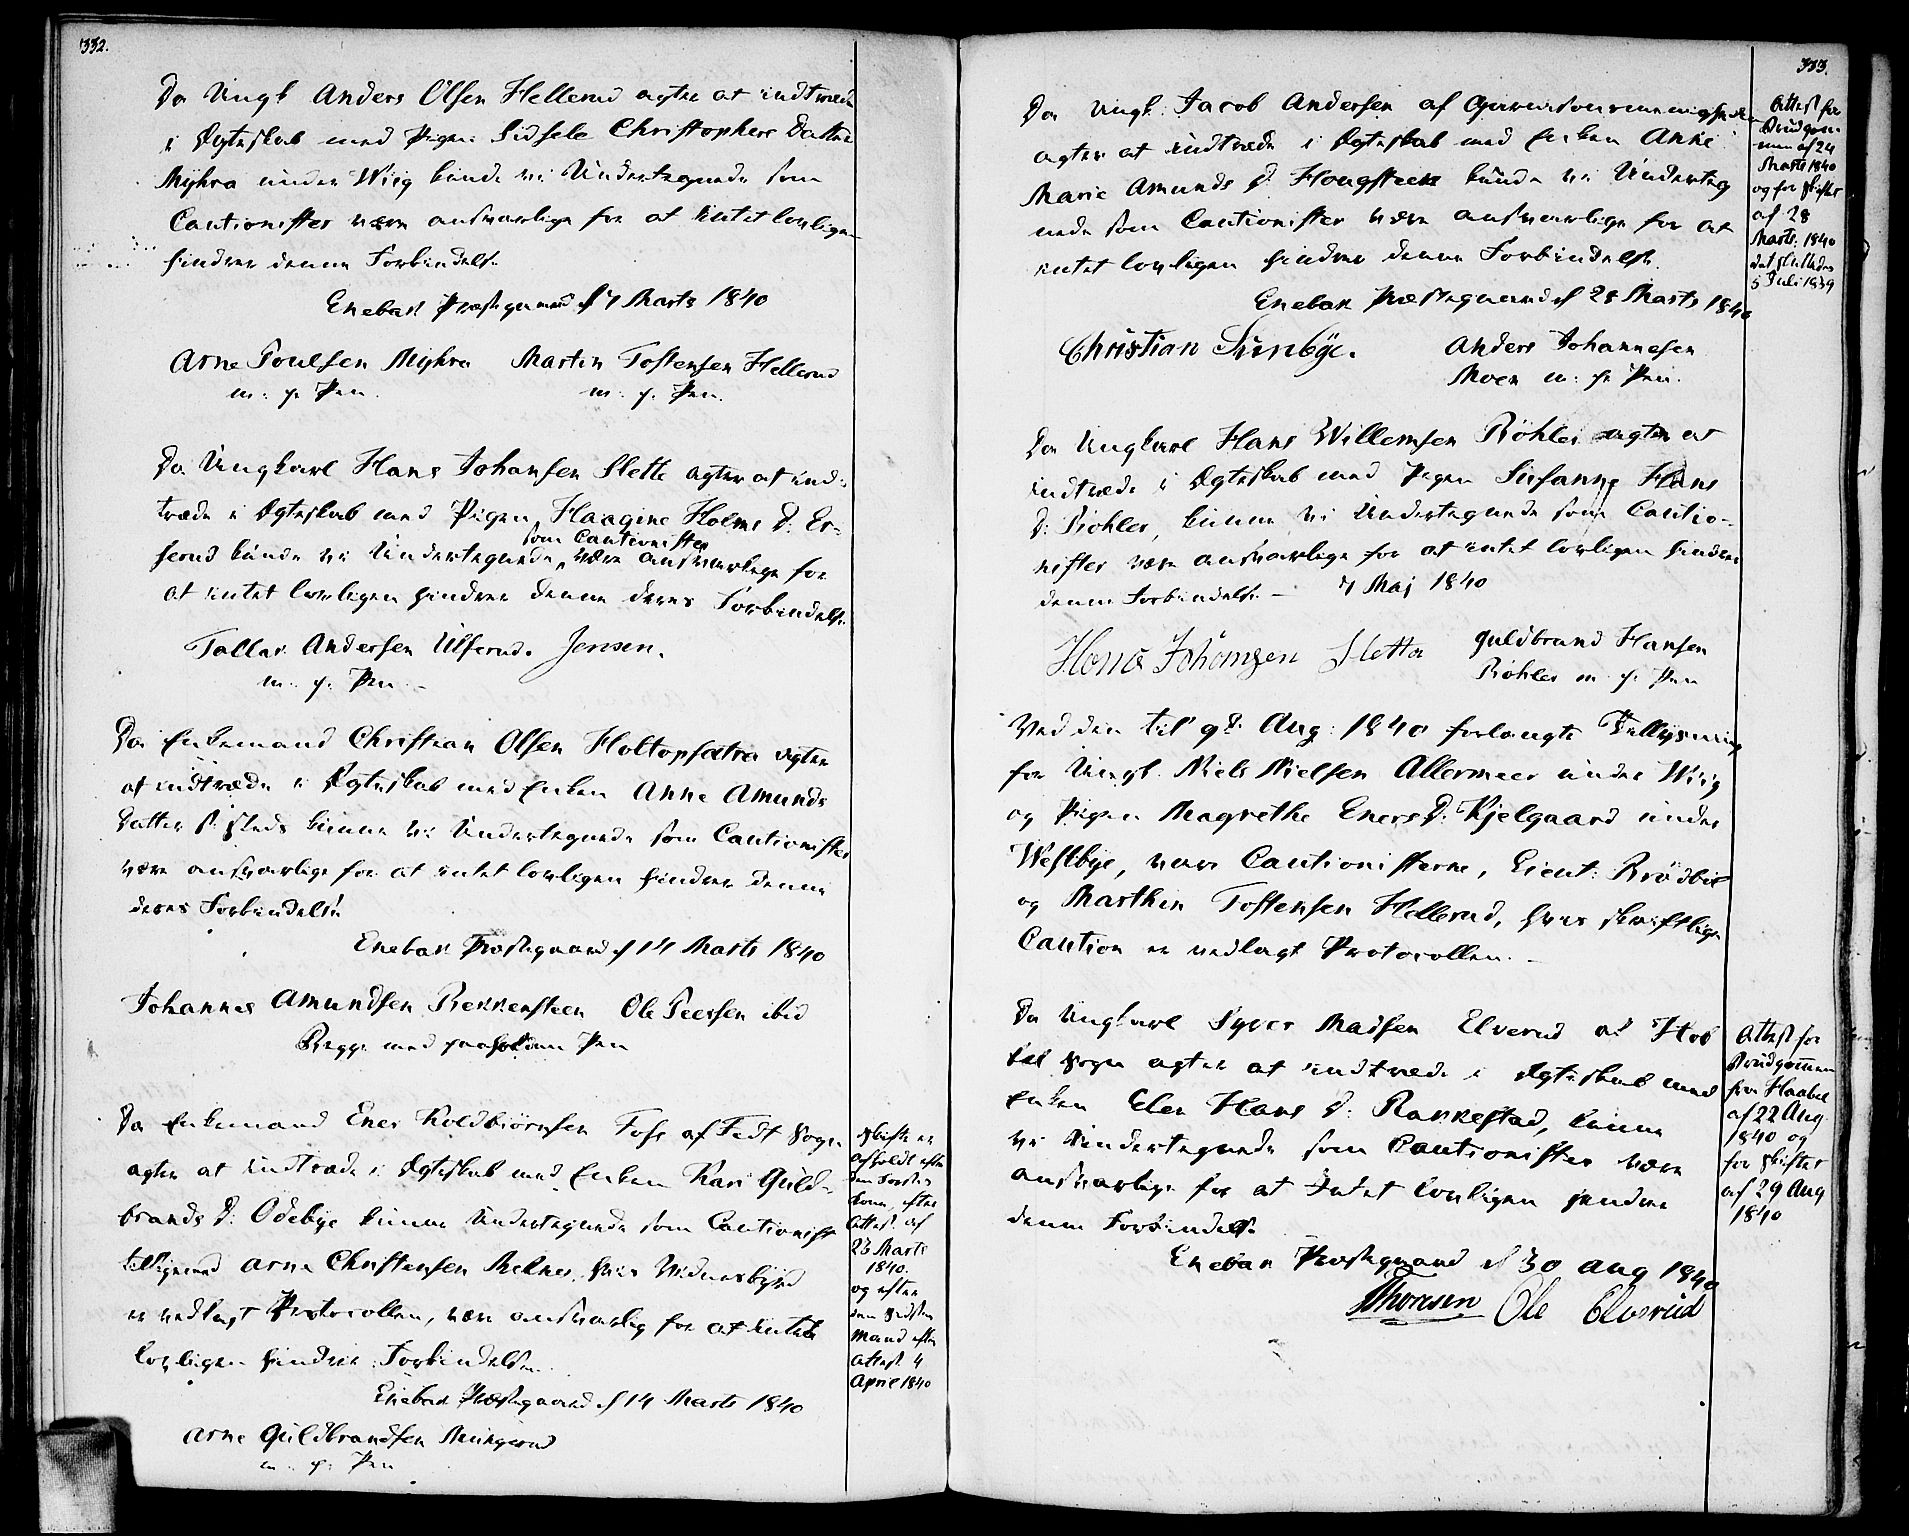 332.
Da Ungk Anders Olsen Hellerud agter at indtræde
i Ægteskab med Pigen Sidsele Christophers Datter
Myhra under Wiig kunde vi Undertegnede som
Cautionister være ansvarlige for at intet lovligen
hindrer denne Forbindelse.
Enebak Præstegaard d 7 Marts 1840
Arne Poulsen Myhra Martin Tostensen Hellerud
m. f. Pen. m. f. Pen.
Da Ungkarl Hans Johansen Slette agter at ind-
træde i Ægteskab med Pigen Haagine Holms D: Er-
som Cautionister
serud kunde vi Undertegnede, være ansvarlige for
at intet lovligen hindrer denne deres Forbindelse
Tollar Andersen Ulserud. Jensen.
m. f. Pen.
Da Enkemand Christian Olsen Holtopsætra agter
at indtræde i Ægteskab med Enken Anne Amunds
Datter s. steds kunne vi Undertegnede som Cautionister
være ansvarlige for at intet lovligen hindrer denne
deres Forbindelse
Enebak Præstegaard d 14 Marts 1840
Johannes Amundsen Rekkensteen Ole Peersen ibid
Begge med paaholden Pen
Da Enkemand Ener Koldbiørnsen Foss af Fedt Sogn
agter at indtræde i Ægteskab med Enken Kari Guld-
brands D: Odebye kunne Undertegnede som Cautionist
tilligemed Arne Christensen Melnes, hvis Vidnesbyrd
er vedlagt Protocollen, være ansvarlig for at intet
lovligen hindrer Forbindelsen.
Enebak Præstegaard d 14 Marts 1840
Arne Guldbrandsen Mungerud
m. f. Pen
Skifte er
afholdt efter
den første
Kone, efter
Attest af
23 Marts
1840.
og efter
den sidste
Mand efter
Attest 4
April 1840
333.
Da Ungk. Jacob Andersen af
agter at indtræde i Ægteskab med Enken Anne
Marie Amunds D. Hougsteen kunde vi Underteg
nede som Cautionister være ansvarlige for at
intet lovligen hindrer denne Forbindelse.
Enebak Præstegaard d 28 Marts 1840
Christian Sunbye. Anders Johannesen
Moen m: f: Pen.
Attest for
Brudgom-
men af 24
Marts 1840
og for Skifter
af 28
Marts 1840
det sluttedes
5 Juli 1839
Da Ungkarl Hans Willemsen Røhler agter at
indtræde i Ægteskab med Pigen Susanne Hans
D: Røhler, kunne vi Undertegnede som Cautio-
nister være ansvarlige for at intet lovligen hindrer
denne Forbindelse — 7 Maj 1840
Hans Johansen Sletta Guldbrand Hansen
Røhler m. f. Pen
Ved den til 9d. Aug: 1840 forlangte Tillysning
for Ungk. Niels Nielsen Allermeer under Wiig
og Pigen Magrethe Eners D. Kjelgaard under
Westbye, vare Cautionisterne, Lieut: Brødbøl
og Marthin Tostensen Hellerud, hvis skriftlige
Caution er vedlagt Protocollen. —
Da Ungkarl Syver Madsen Elverud af Hob
bøl Sogn agter at indtræde i Ægteskab med
Enken Elen Hans D: Rakkestad, kunne
vi Undertegnede som Cautionister være
ansvarlige for at Intet lovligen hindrer
denne Forbindelse
Enebak Præstegaard d 30 Aug 1840
Thoresen Ole Elverud
Attest for
Brudgommen
fra Haabøl
af 22 Aug
1840 og
for Skifter
af 29 Aug
1840